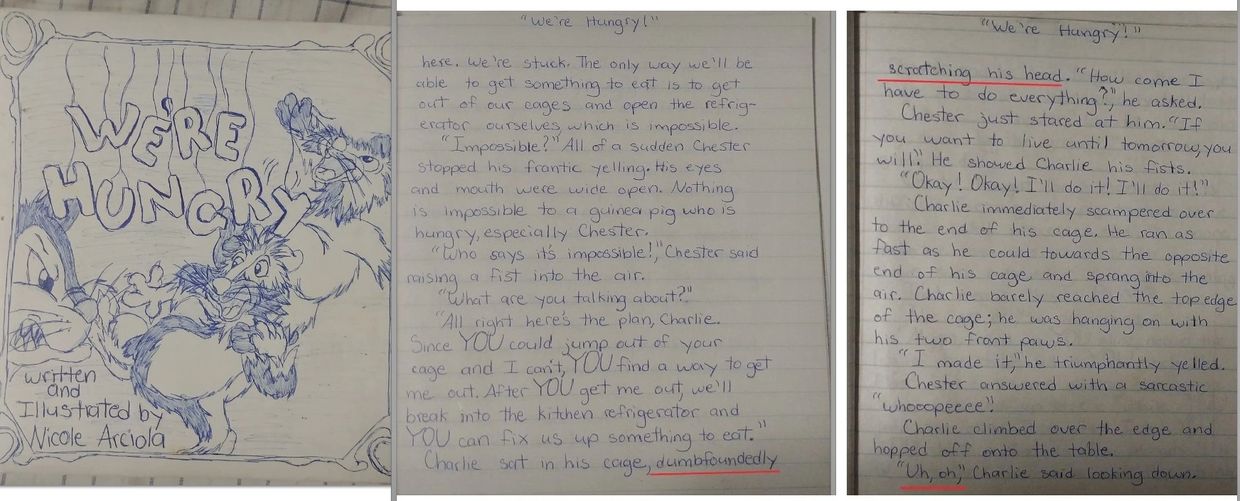 WE'RE
HUNGRY
written
and
Illustrated by
Nicole Arciola
"We're Hungry!"
here. We're stuck. The only way we'll be
able to get something to eat is to get
out of our cages and open the refrig-
erator ourselves, which is impossible.
"Impossible?" All of a sudden Chester
stopped his frantic yelling. His eyes
and mouth were wide open. Nothing
is impossible to a guinea pig who is
hungry, especially Chester.
"Who says it's impossible!," Chester said
raising a fist into the air.
"What are you talking about?"
"All right here's the plan, Charlie.
Since YOU could jump out of your
cage and I can't, YOU find a way to get
me out. After YOU get me out, we'll
break into the kitchen refrigerator and
YOU can fix us up something to eat."
Charlie sat in his cage, dumbfoundedly
"We're Hungry!"
scratching his head. "How come I
have to do everything?", he asked.
Chester just stared at him. "If
you want to live until tomorrow, you
will". He showed Charlie his fists.
"Okay! Okay! I'll do it! I'll do it!"
Charlie immediately scampered over
to the end of his cage. He ran as
fast as he could towards the opposite
end of his cage and sprang into the
air. Charlie barely reached the top edge
of the cage; he was hanging on with
his two front paws.
"I made it," he triumphantly yelled.
Chester answered with a sarcastic
"whooopeeee".
Charlie climbed over the edge and
hopped off onto the table.
"Uh, oh," Charlie said looking down.